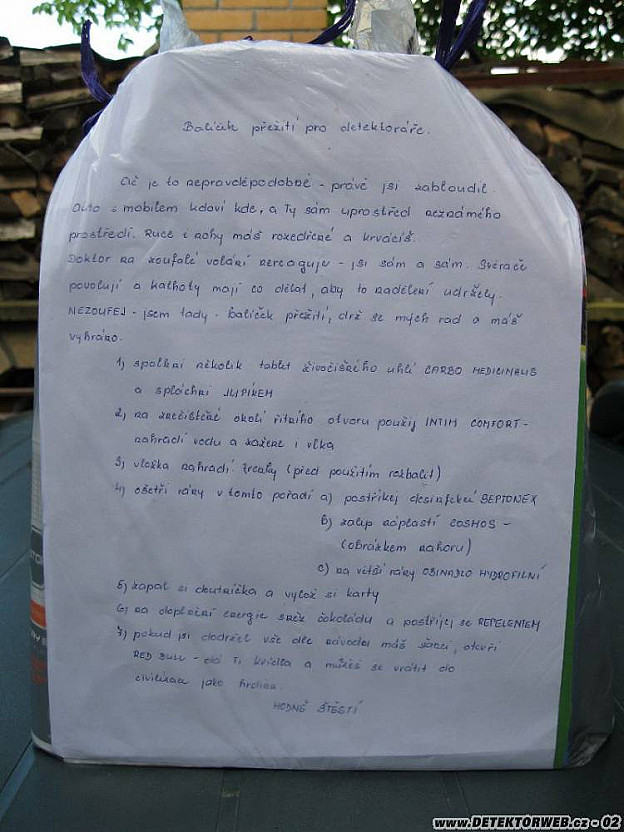 Balíček přežití pro detektoráře.
Ač je to nepravděpodobné - právě jsi zabloudil.
Auto i mobilem kdoví kde, a Ty sám uprostřed neznámého
prostředí. Ruce i nohy máš rozedřené a krvácíš.
Doktor na zoufalé volání nereaguje - jsi sám a sám. Svěrače
povolují a kalhoty mají co dělat, aby to nadělení udržely.
NEZOUFEJ - jsem tady - balíček přežití, drž se mých rad a máš
vyhráno.
1) spolkni několik tablet živočišného uhlí CARBO MEDICINALIS
a spláchni JUPÍKEM
2) na znečištěné okolí řitního otvoru použij INTIM COMFORT -
nahradí vodu a zažene i vlka
3) vložka nahradí trenky (před použitím rozbalit)
4) ošetři rány v tomto pořadí a) postříkej desinfekcí SEPTONEX
b) zalep náplastí COSMOS -
(obrázkem nahoru)
c) na větší rány OBINADLO HYDROFILNÍ
5) zapal si doutníčka a vylož si karty
6) na doplnění energie sněz čokoládu a postříkej se REPELENTEM
7) pokud jsi dodržel vše dle návodu máš šanci, otevři
RED BULL - dá Ti křídla a můžeš se vrátit do
civilizace jako hrdina.
HODNĚ ŠTĚSTÍ
www.DETEKTORWEB.cz - 02